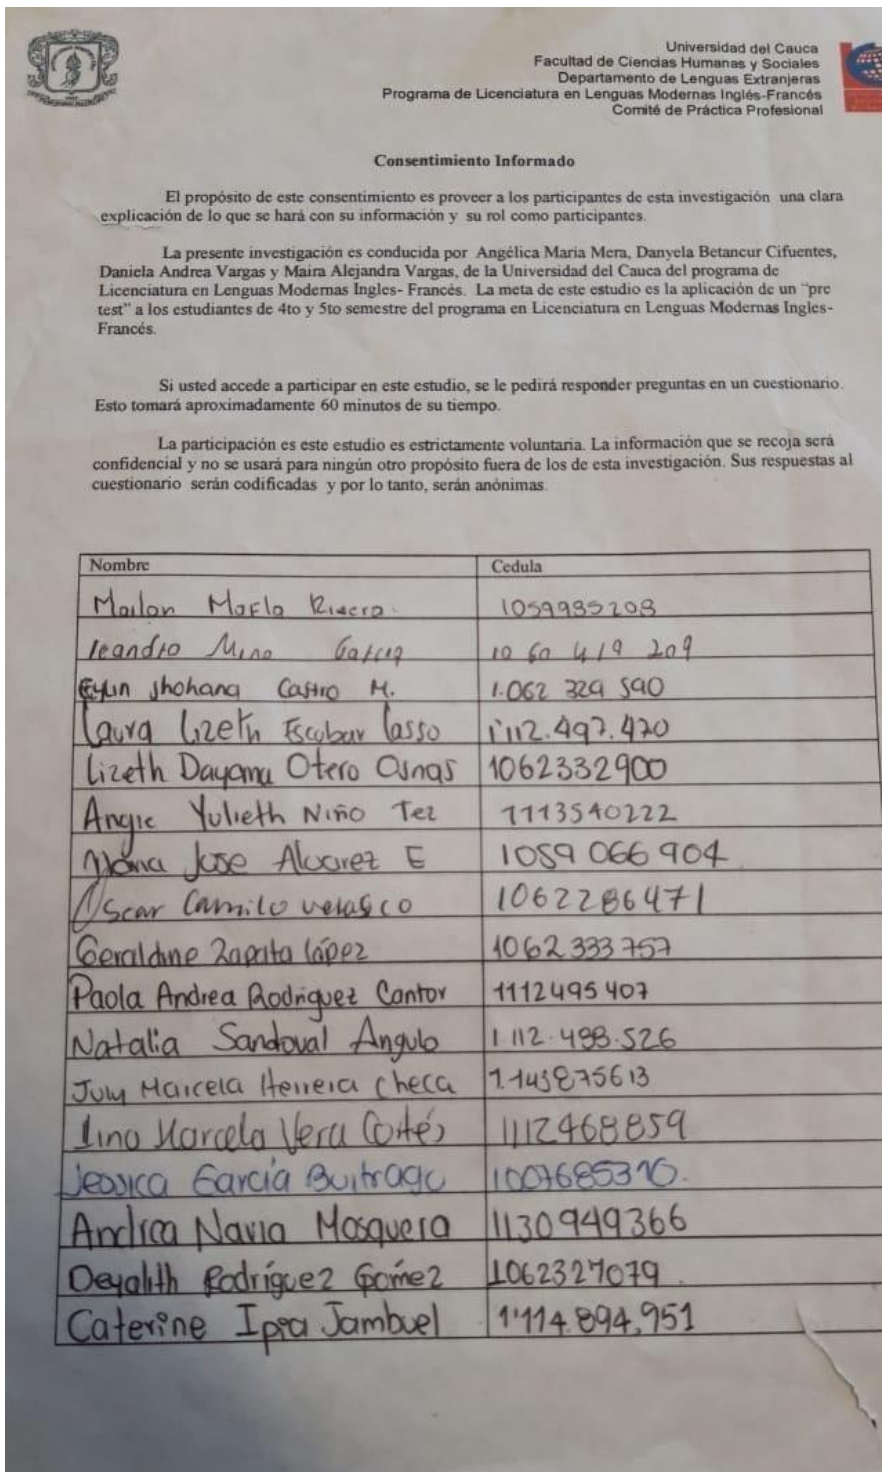 Universidad del Cauca
Facultad de Ciencias Humanas y Sociales
Departamento de Lenguas Extranjeras
Programa de Licenciatura en Lenguas Modernas Inglés-Francés
Comité de Práctica Profesional
Consentimiento Informado
El propósito de este consentimiento es proveer a los participantes de esta investigación una clara
explicación de lo que se hará con su información y su rol como participantes.
La presente investigación es conducida por Angélica Maria Mera, Danyela Betancur Cifuentes,
Daniela Andrea Vargas y Maira Alejandra Vargas, de la Universidad del Cauca del programa de
Licenciatura en Lenguas Modernas Ingles- Francés. La meta de este estudio es la aplicación de un “pre
test” a los estudiantes de 4to y 5to semestre del programa en Licenciatura en Lenguas Modernas Ingles-
Francés.
Si usted accede a participar en este estudio, se le pedirá responder preguntas en un cuestionario.
Esto tomará aproximadamente 60 minutos de su tiempo.
La participación es este estudio es estrictamente voluntaria. La información que se recoja será
confidencial y no se usará para ningún otro propósito fuera de los de esta investigación. Sus respuestas al
cuestionario serán codificadas y por lo tanto, serán anónimas.
Nombre Cedula
Mafla 1059985208
leandro Garcia 10 60 419 209
Jhohana Castro M. 1.062 329 590
Laura Lizeth Escobar Lasso 1'112.497.420
Lizeth Dayana Otero 1062332900
Angie Yulieth Niño Tez 1113540222
Maria Jose Alvarez E 1059 066 904
Oscar Camilo velasco 1062286471
Geraldine Zapata López 1062 333 757
Paola Andrea Rodriguez Cantor 1112495407
Natalia Sandoval Angulo 1.112.488.526
July Marcela Herrera checa 1.143875613
Lina Marcela Vera Cortés 1112468859
Jessica García Buitrago 1007685310.
Andrea Navia Mosquera 1130949366
Deyalith Rodríguez Gómez 1062327079.
Caterine Ipia Jambuel 1'114.894,951